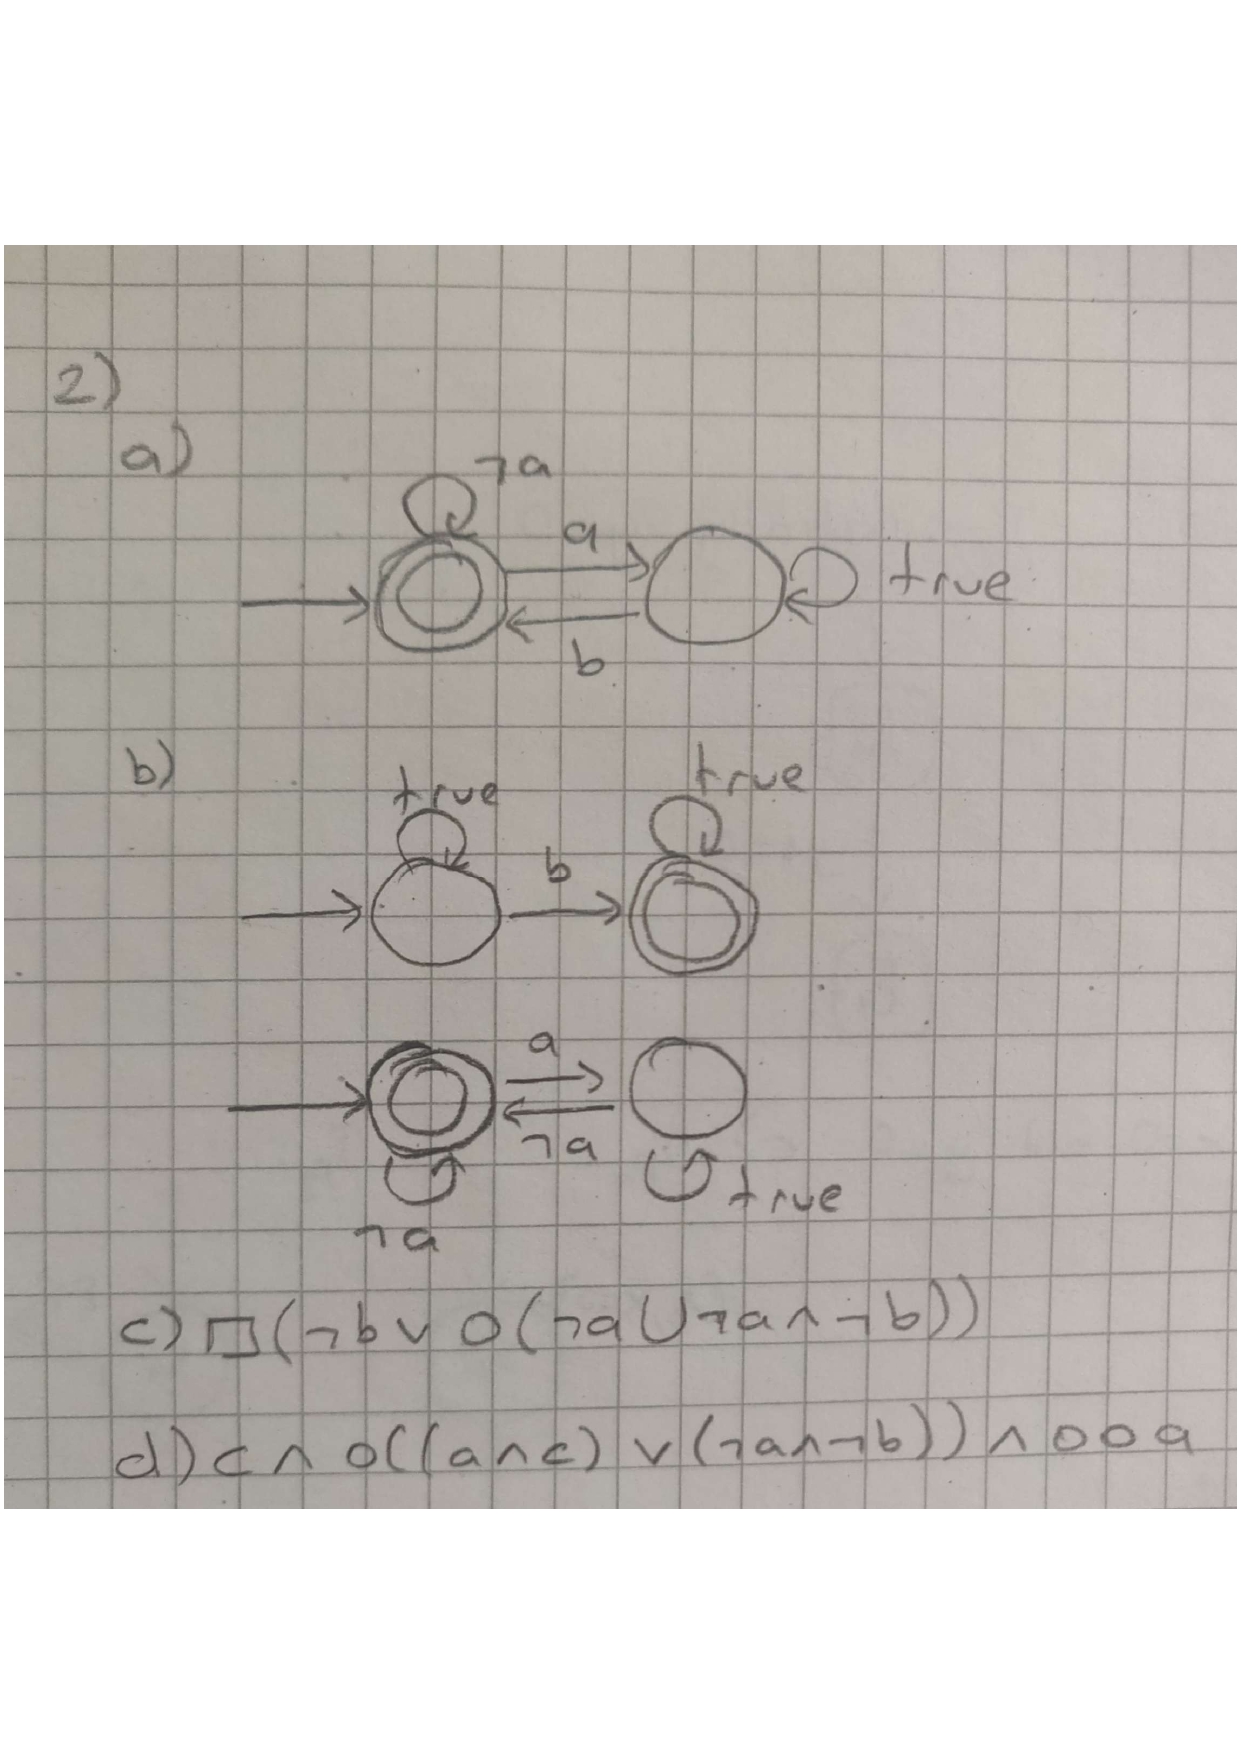 2)
a)
¬a
a
true
b
b)
true
true
b
a
¬a
true
¬a
c) □(¬b ∨ O(¬a U ¬a ∧ ¬b))
d) c ∧ O((a ∧ c) ∨ (¬a ∧ ¬b)) ∧ O O a